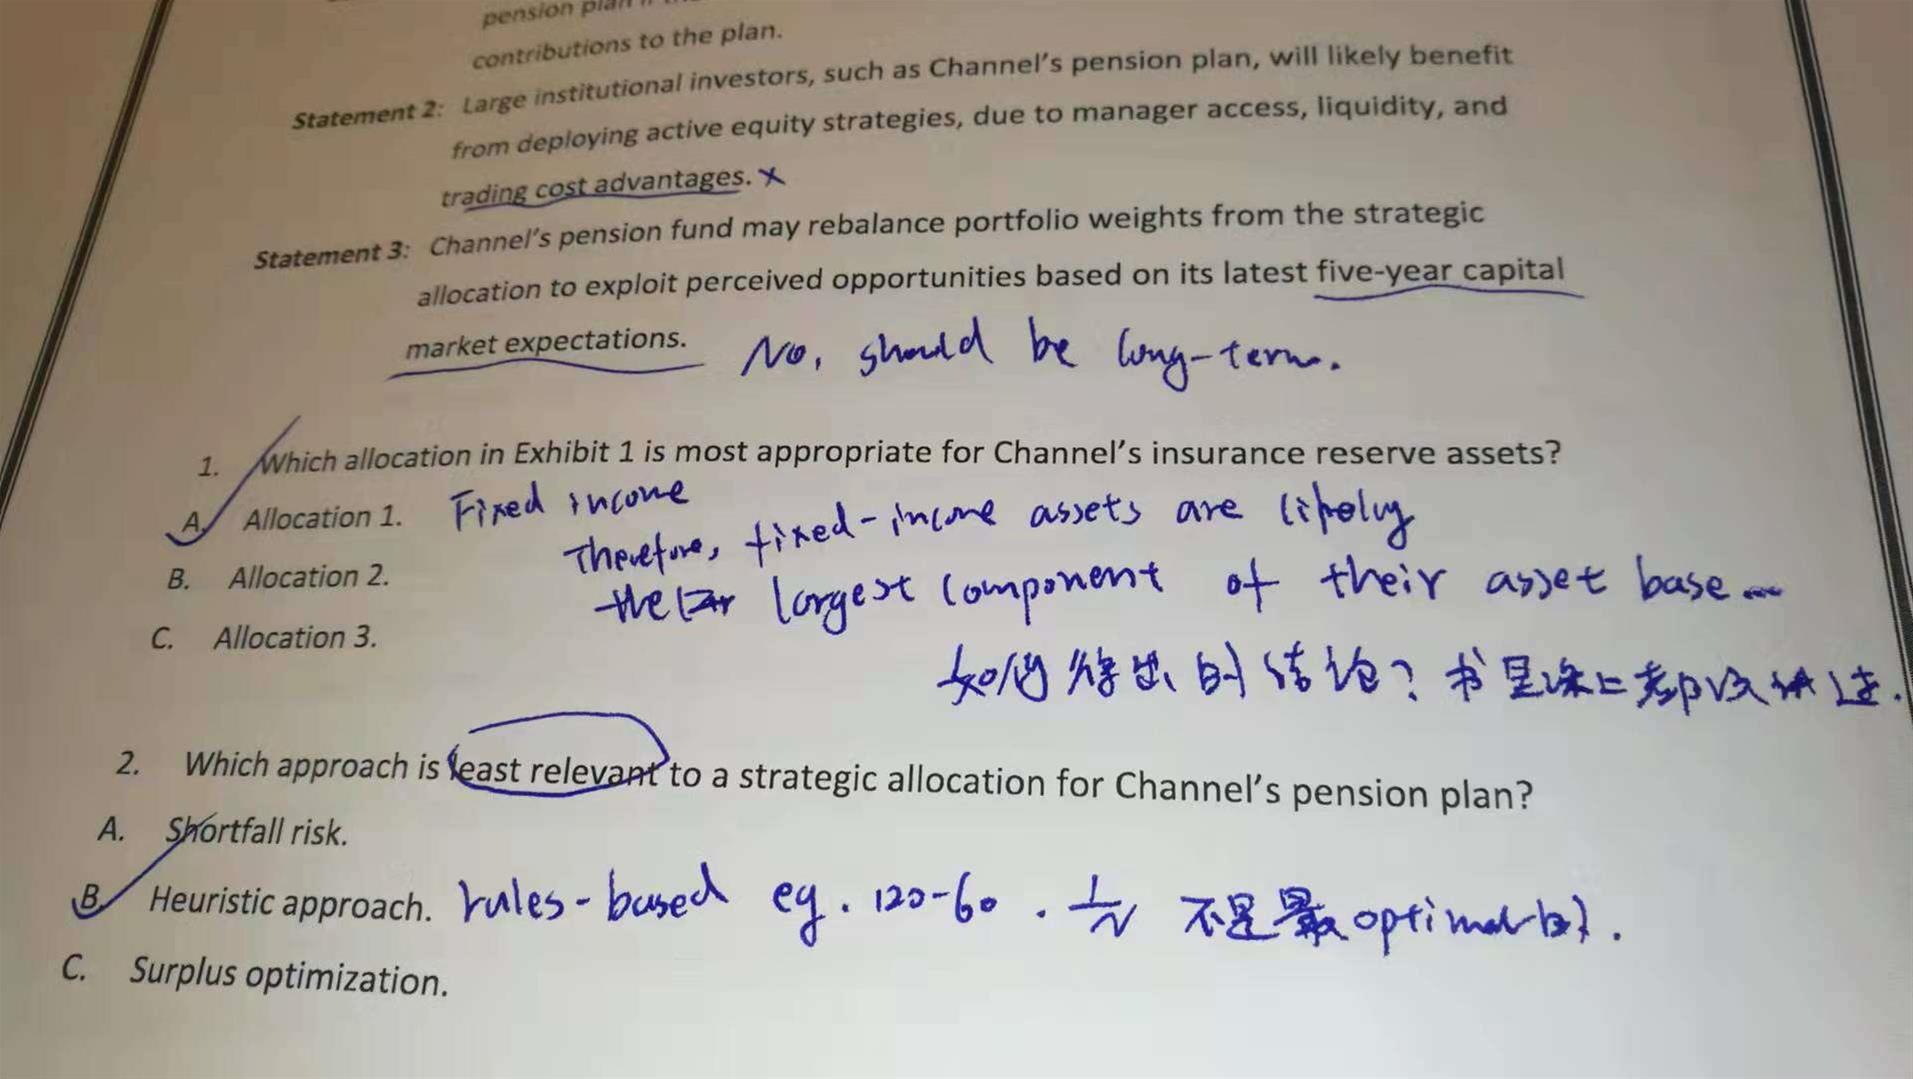 pension plan
contributions to the plan.
Statement 2: Large institutional investors, such as Channel's pension plan, will likely benefit
from deploying active equity strategies, due to manager access, liquidity, and
trading cost advantages. ×
Statement 3: Channel's pension fund may rebalance portfolio weights from the strategic
allocation to exploit perceived opportunities based on its latest five-year capital
market expectations. No, should be long-term.
1. Which allocation in Exhibit 1 is most appropriate for Channel's insurance reserve assets?
A. Allocation 1. Fixed income
Therefore, fixed-income assets are likely
the largest component of their asset base ...
B. Allocation 2.
C. Allocation 3.
如何得出的结论? 书里课上都没讲过.
2. Which approach is least relevant to a strategic allocation for Channel's pension plan?
A. Shortfall risk.
B. Heuristic approach. rules-based eg. 120-60. 1/N 不是最optimal的.
C. Surplus optimization.